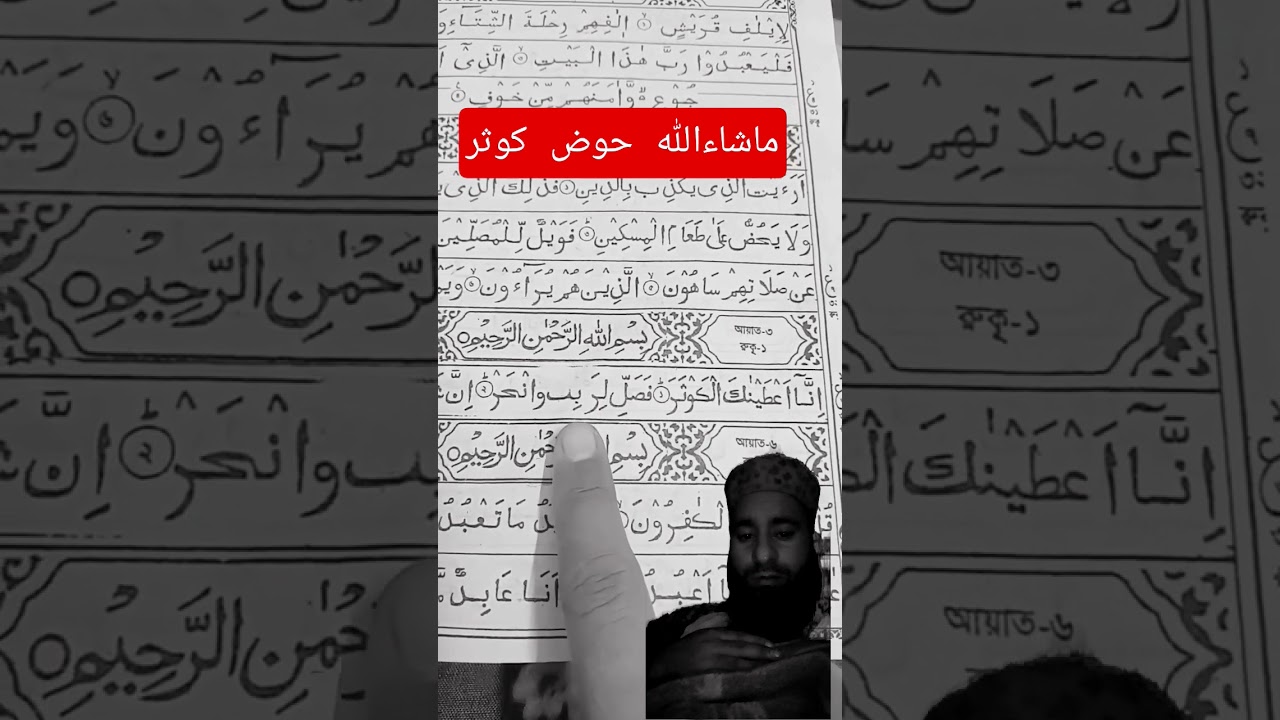 لِاِيْلٰفِ قُرَيْشٍ ۙ۱ اٖلٰفِهِمْ رِحْلَةَ الشِّتَآءِ
فَلْيَعْبُدُوْا رَبَّ هٰذَا الْبَيْتِ ۙ۳ الَّذِيْٓ
جُوْعٍ ۙ وَّاٰمَنَهُمْ مِّنْ خَوْفٍ ۴
ماشاءالله حوض کوثر
اَرَءَيْتَ الَّذِيْ يُكَذِّبُ بِالدِّيْنِ ۱ فَذٰلِكَ الَّذِيْ
وَلَا يَحُضُّ عَلٰى طَعَامِ الْمِسْكِيْنِ ۳ فَوَيْلٌ لِّلْمُصَلِّيْنَ
عَنْ صَلَاتِهِمْ سَاهُوْنَ ۙ۵ الَّذِيْنَ هُمْ يُرَآءُوْنَ ۙ۶
আয়াত-৩
রুকূ-১
بِسْمِ اللهِ الرَّحْمٰنِ الرَّحِيْمِ
اِنَّآ اَعْطَيْنٰكَ الْكَوْثَرَ ۱ فَصَلِّ لِرَبِّكَ وَانْحَرْ ۲ اِنَّ
আয়াত-৬
بِسْمِ الرَّحْمٰنِ الرَّحِيْمِ
الْكٰفِرُوْنَ مَا تَعْبُدُ
اَعْبُدُ اَنَا عَابِدٌ